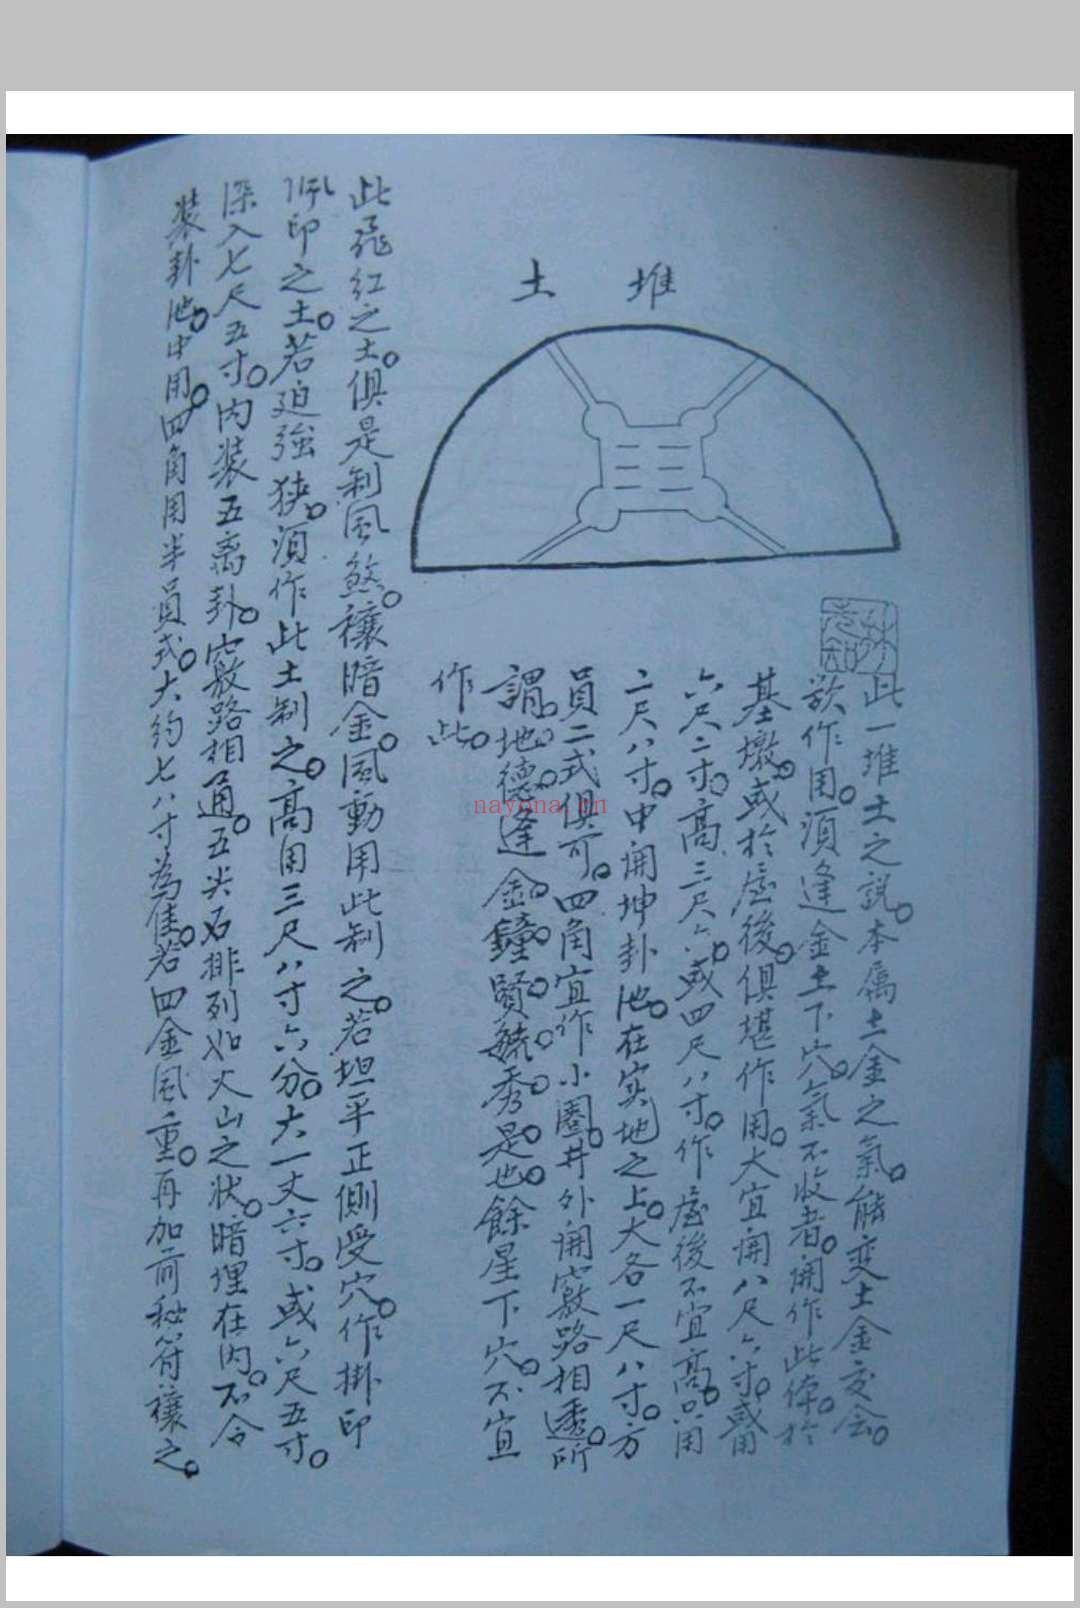 堆土
此一堆土之說。本属土金之氣。能变土金交会。
欲作用。須逢金土下穴。氣不收者。開作此傳。於
基墩。或於屋後。俱堪作用。大宜開八尺六寸。或用
六尺二寸。高三尺六。或四尺八寸。作屋後不宜高。只用
二尺八寸。中開坤卦池。在实地之上。大各一尺八寸。方
員二式俱可。四角宜作小圈井。外開竅路相透。所
謂。地。德。逢金。鐘。賢。毓。秀。是。也。餘星下穴。不宜
作此。
此飛紅之土。俱是制風煞。禳暗金。風動用此制之。若坦平正側受穴。作掛印
佩印之土。若迫強狹。須作此土制之。高用三尺八寸六分。大一丈六寸。或六尺五寸。
深入七尺五寸。内装五离卦。竅路相通。五尖石排列如火山之状。暗埋在内。不令
装卦池。中用。四角用半員式。大約七八寸為佳。若四金風重。再加前秘符禳之。
nayona.cn